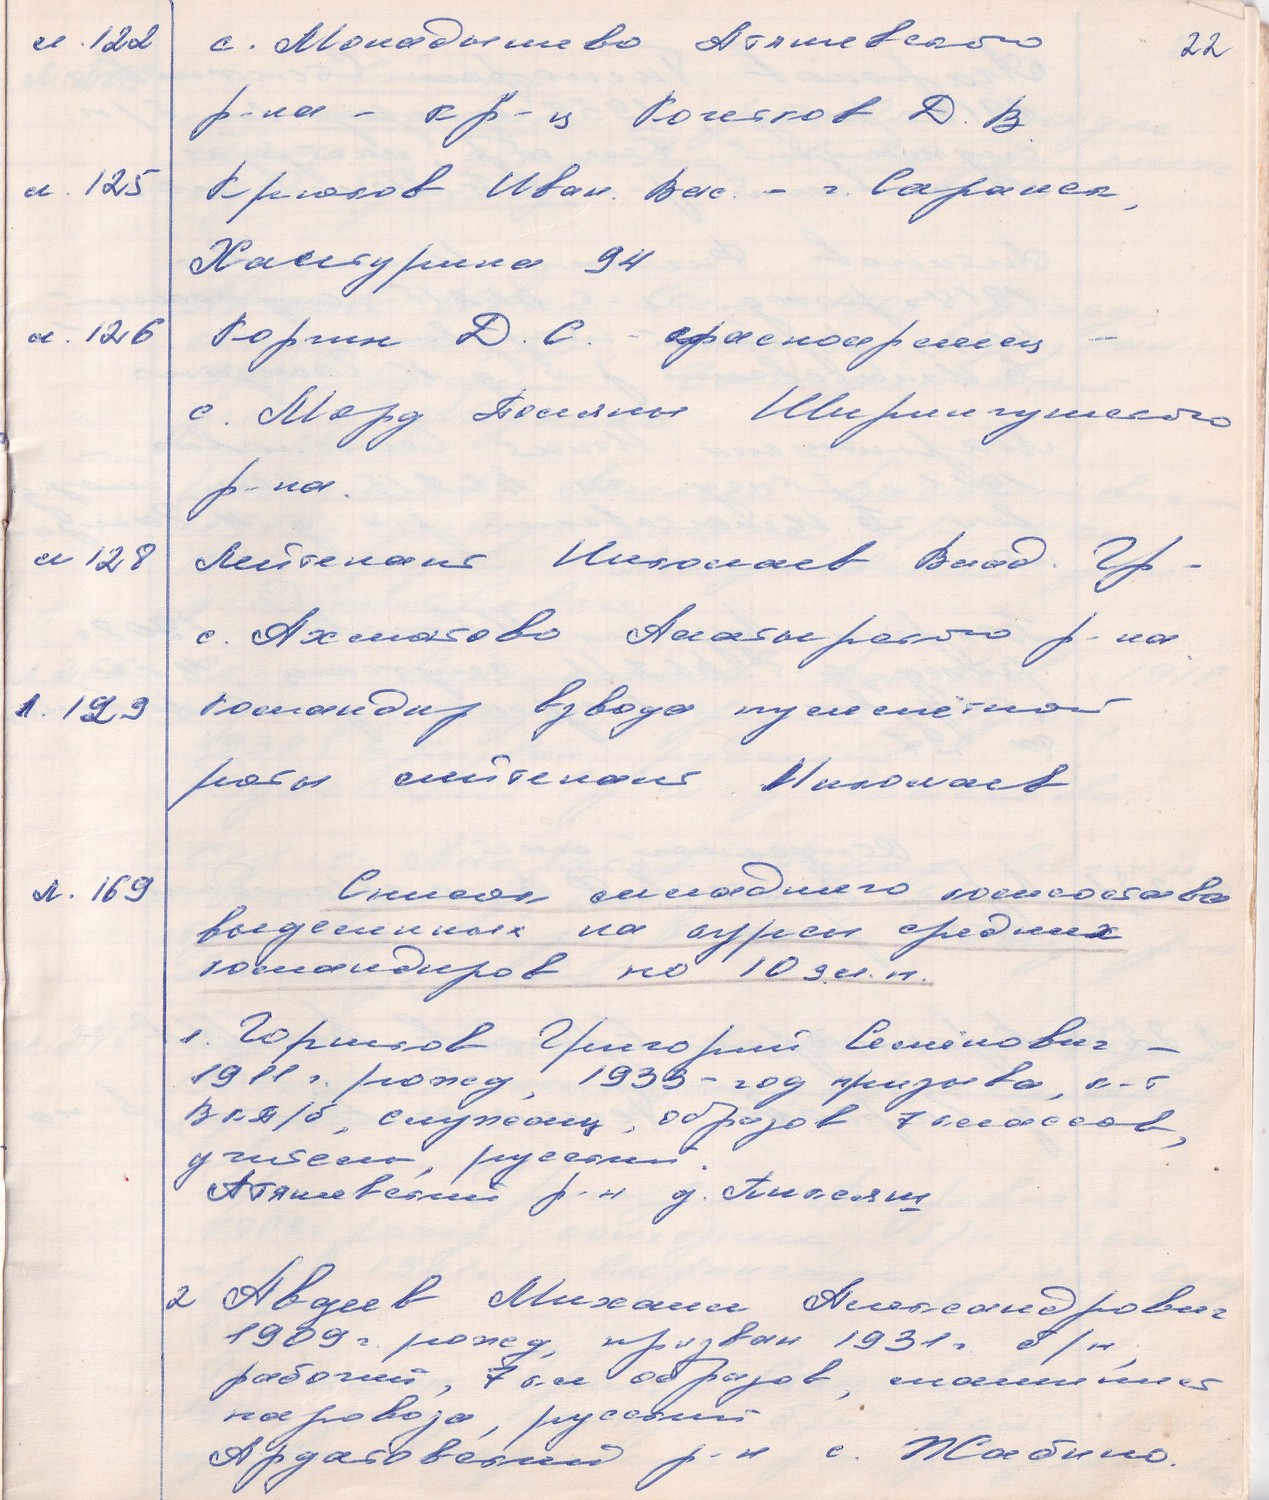 22
л. 122 с. Монадышево Атяшевского
р-на - кр-ц Кочетков Д. В.
л. 125 Крюков Иван. Вас. - г. Саранск,
Халтурина 94
л. 126 Коргин Д. С. - красноармеец -
с. Морд Поляны Ширингушского
р-на.
л 128 Лейтенант Николаев Влад. Гр -
с. Ахматово Алатырского р-на.
л. 129 командир взвода пулемётной
роты лейтенант Николаев
л. 169 Список младшего комсостава
выделенных на курсы средних
командиров по 10 з.м.п.
1. Горшков Григорий Семёнович -
1911 г. рожд, 1933 - год призыва, к-т
ВКП/б, служащ, образов 7 классов,
учитель, русский.
Атяшевский р-н д. Пиксяш
2 Авдеев Михаил Александрович
1909 г. рожд, призван 1931 г. б/п,
рабочий, 7 кл образов, машинист
паровоза, русский
Ардатовский р-н с. Жабино.